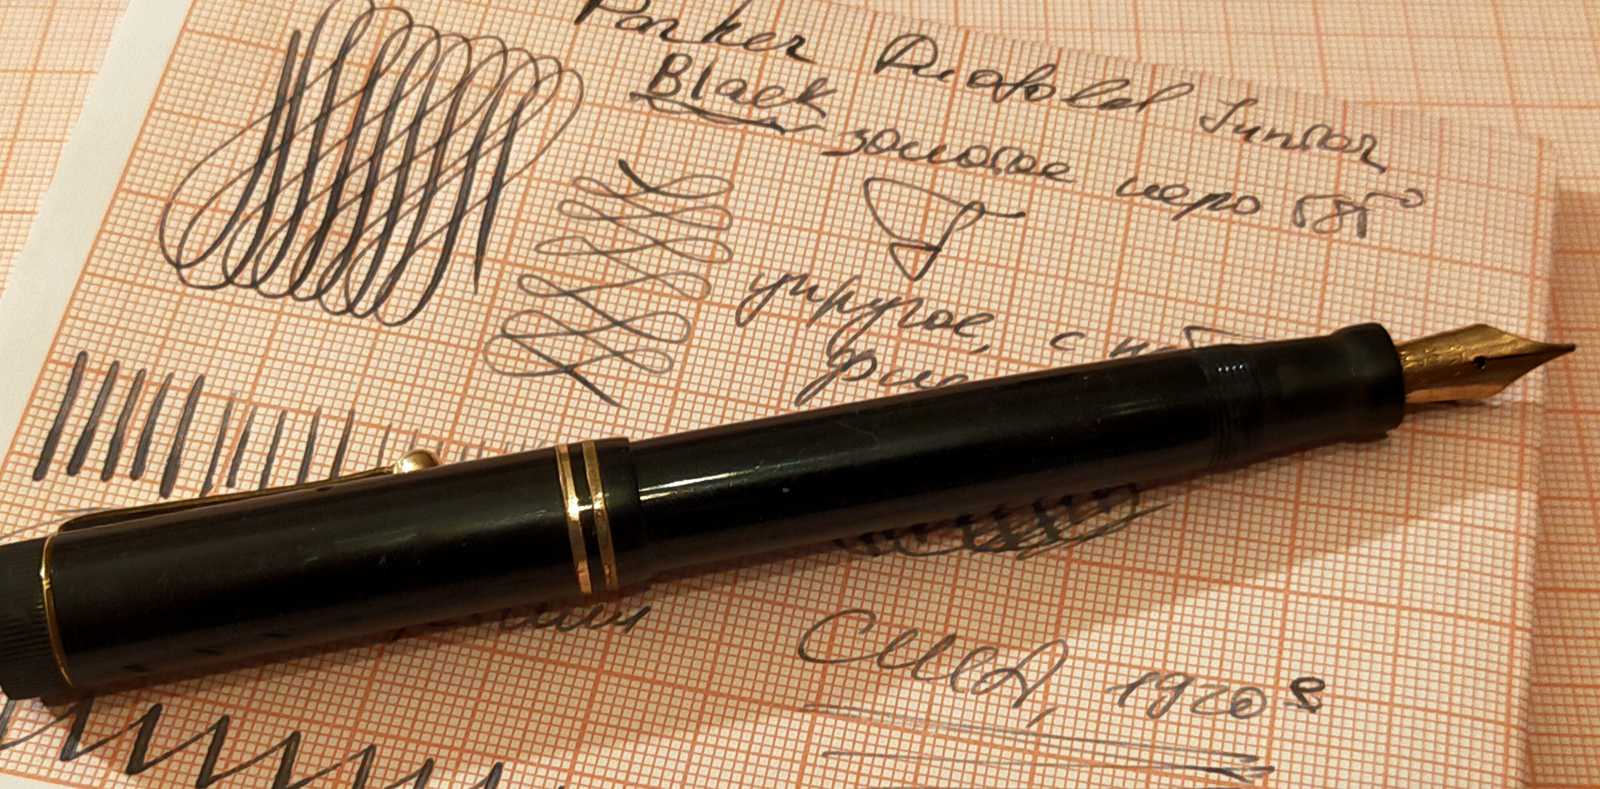 Parker Duofold Junior
Black золотое перо 585°
упругое, с
США, 1920е